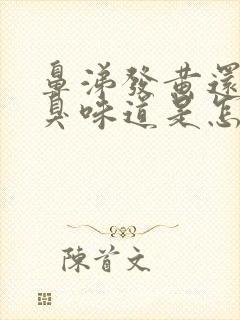 鼻涕發黃還
臭味道是怎
陳首文